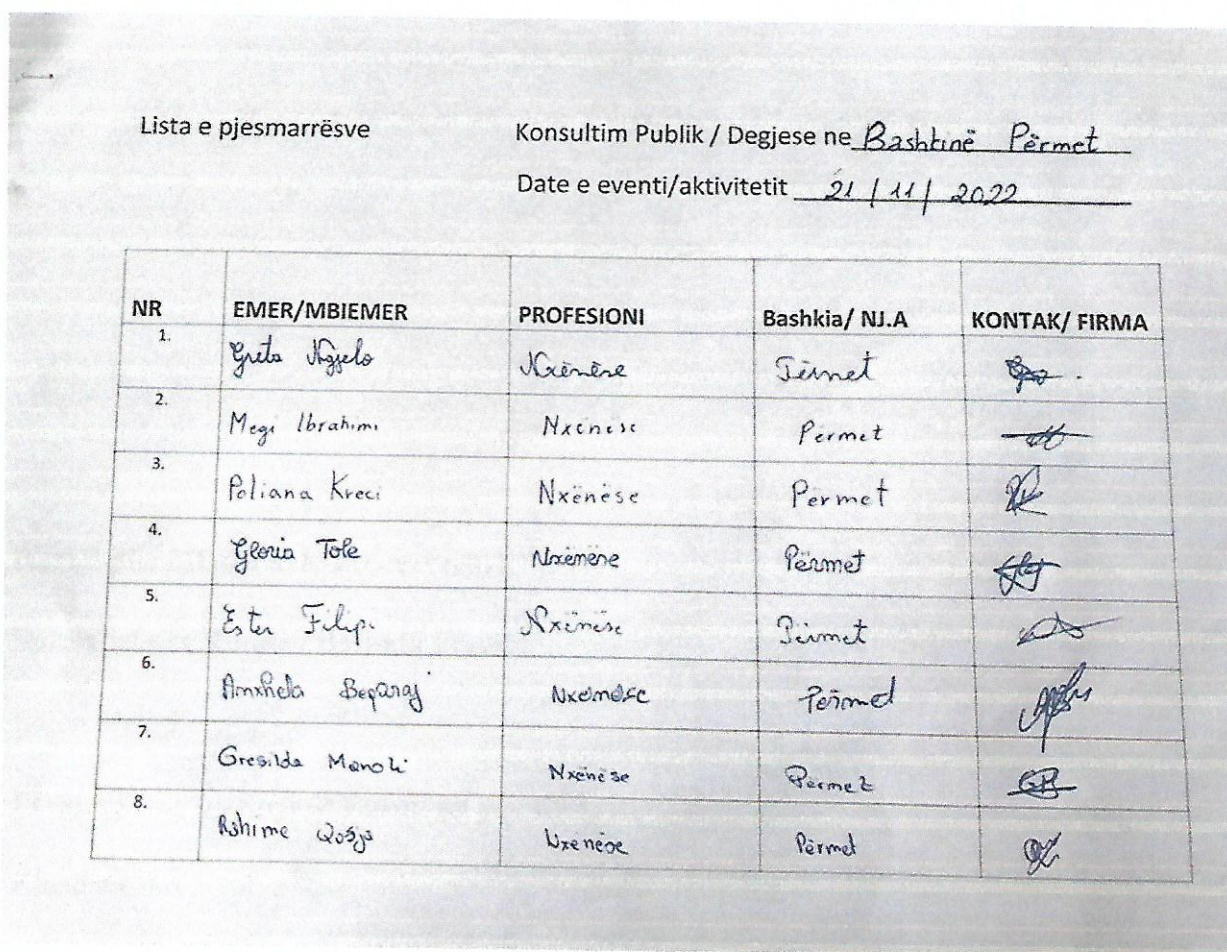 Lista e pjesmarrësve
Konsultim Publik / Degjese ne Bashkinë Përmet
Date e eventi/aktivitetit 21 / 11 / 2022
NR EMER/MBIEMER PROFESIONI Bashkia/ NJ.A KONTAK/ FIRMA
1. Greta Ngjelo Nxënëse Përmet
2. Megi Ibrahimi Nxënëse Përmet
3. Poliana Kreci Nxënëse Përmet
4. Gloria Tole Nxënëse Përmet
5. Ester Filipi Nxënëse Përmet
6. Anxhela Beqaraj Nxënëse Përmet
7. Gresilda Manoli Nxënëse Përmet
8. Nxënëse Përmet